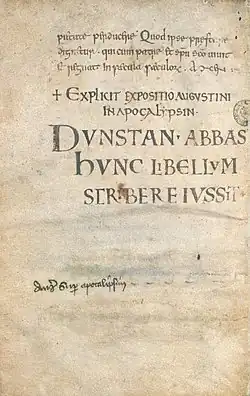 putate perducere Quod ipse prestare
dignetur qui cum patre et spu sco uiuit
& regnat in secula seculoꝝ. AMEN
+ EXPLICIT EXPOSITIO AUGUSTINI
IN APOCALYPSIN·
DVNSTAN· ABBAS
HVNC LIBELLVM
SCRIBERE IVSSIT·
sup apocalipsim